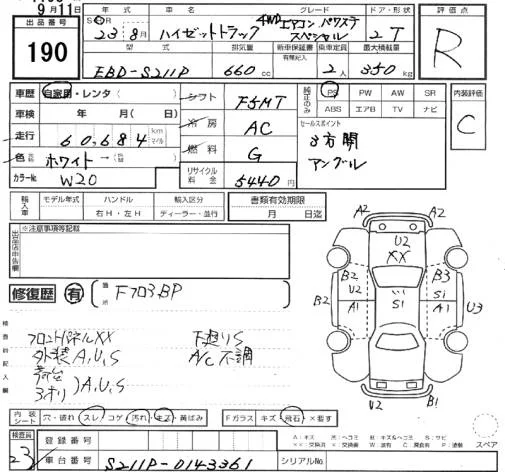 9月11日
出品番号
190
年式 車名 グレード ドア・形状
S H 23年 8月 ハイゼットトラック 4WD エアコン・パワステ スペシャル 2 T
型式 排気量 新車保証書 乗車定員 最大積載量
有無記入
EBD-S211P 660cc 2人 350kg
評価点
R
車歴 自家用・レンタ ( )
車検 年 月( 日)
走行 60,684 km マイル
色 ホワイト →
カラーNo. W20
シフト F5MT
冷房 AC
燃料 G
リサイクル料金 5440円
純正のみ
PS PW AW SR
ABS エアB TV ナビ
セールスポイント
3方開
アングル
内装評価
C
輸入車 モデル年式 ハンドル 輸入区分
右H・左H ディーラー・並行
書類有効期限
月 日迄
※注意事項等記載
出品店申告欄
修復歴 有 箇所 F703,BP
検査員記入欄
フロントパネルXX 下廻りS
外装A,U,S A/C不調
荷台
3オリ )A,U,S
A2 A2
U2
XX
B2 B3
B2 U2 S1 U3
A1 S1 A1
U2 B1
内装シート 穴・破れ スレ コゲ 汚れ・キズ 黄ばみ
Fガラス キズ 飛石 ×要す
スペア
検査員
23
登録番号
車台番号 S211P-0143361
シリアルNo.